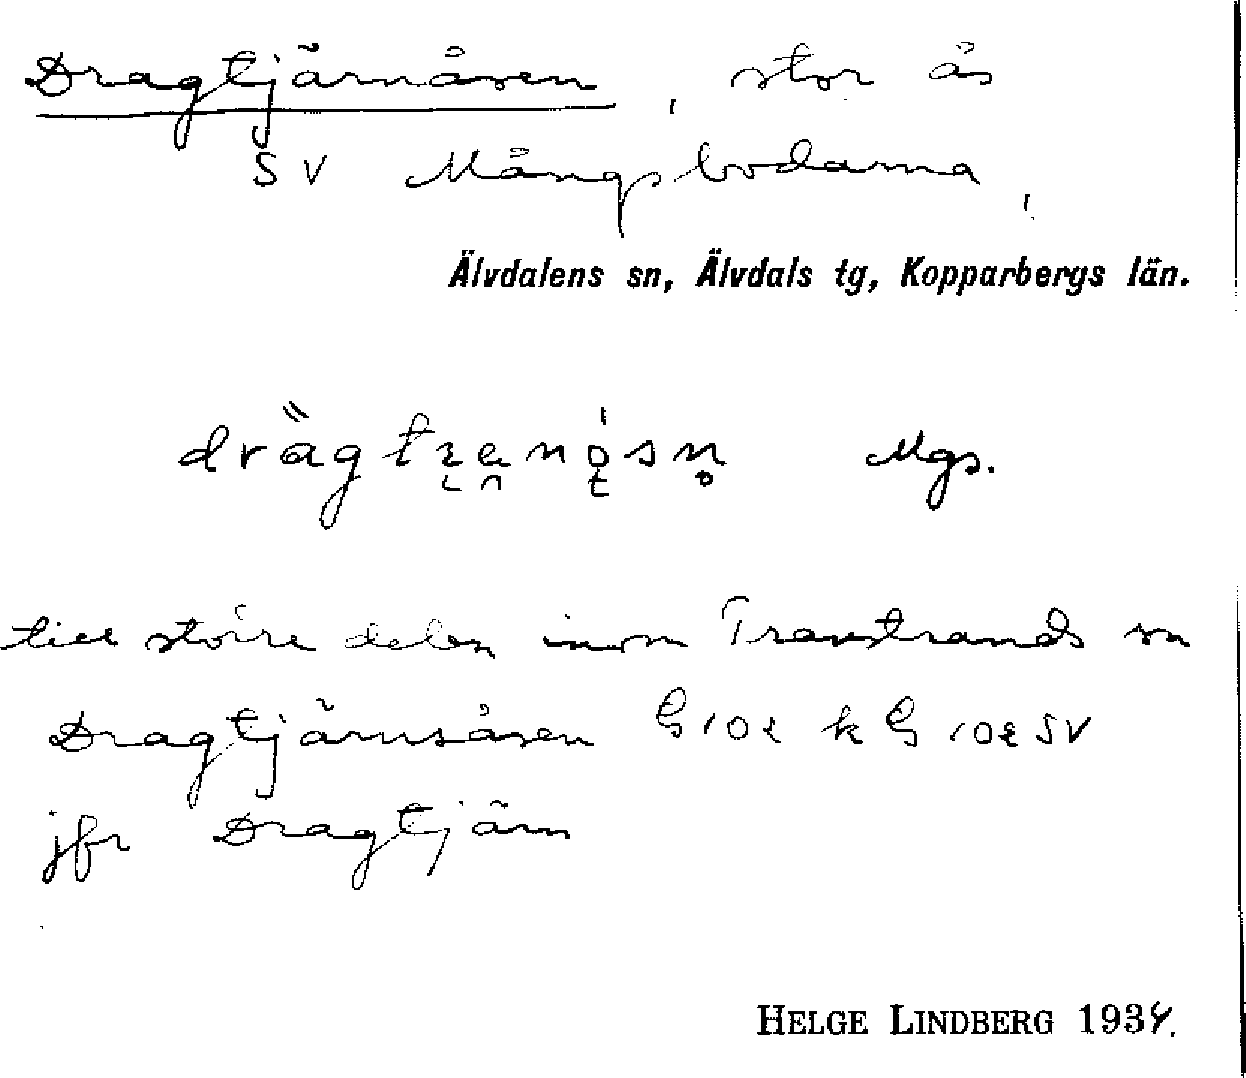 Dragtjärnåsen, stor ås
SV Mångsbodarna,
Älvdalens sn, Älvdals tg, Kopparbergs län.
Mgs.
till större delen inom Transtrands sn
Dragtjärnsåsen G 102 k G 102 SV
jfr Dragtjärn
HELGE LINDBERG 1934.